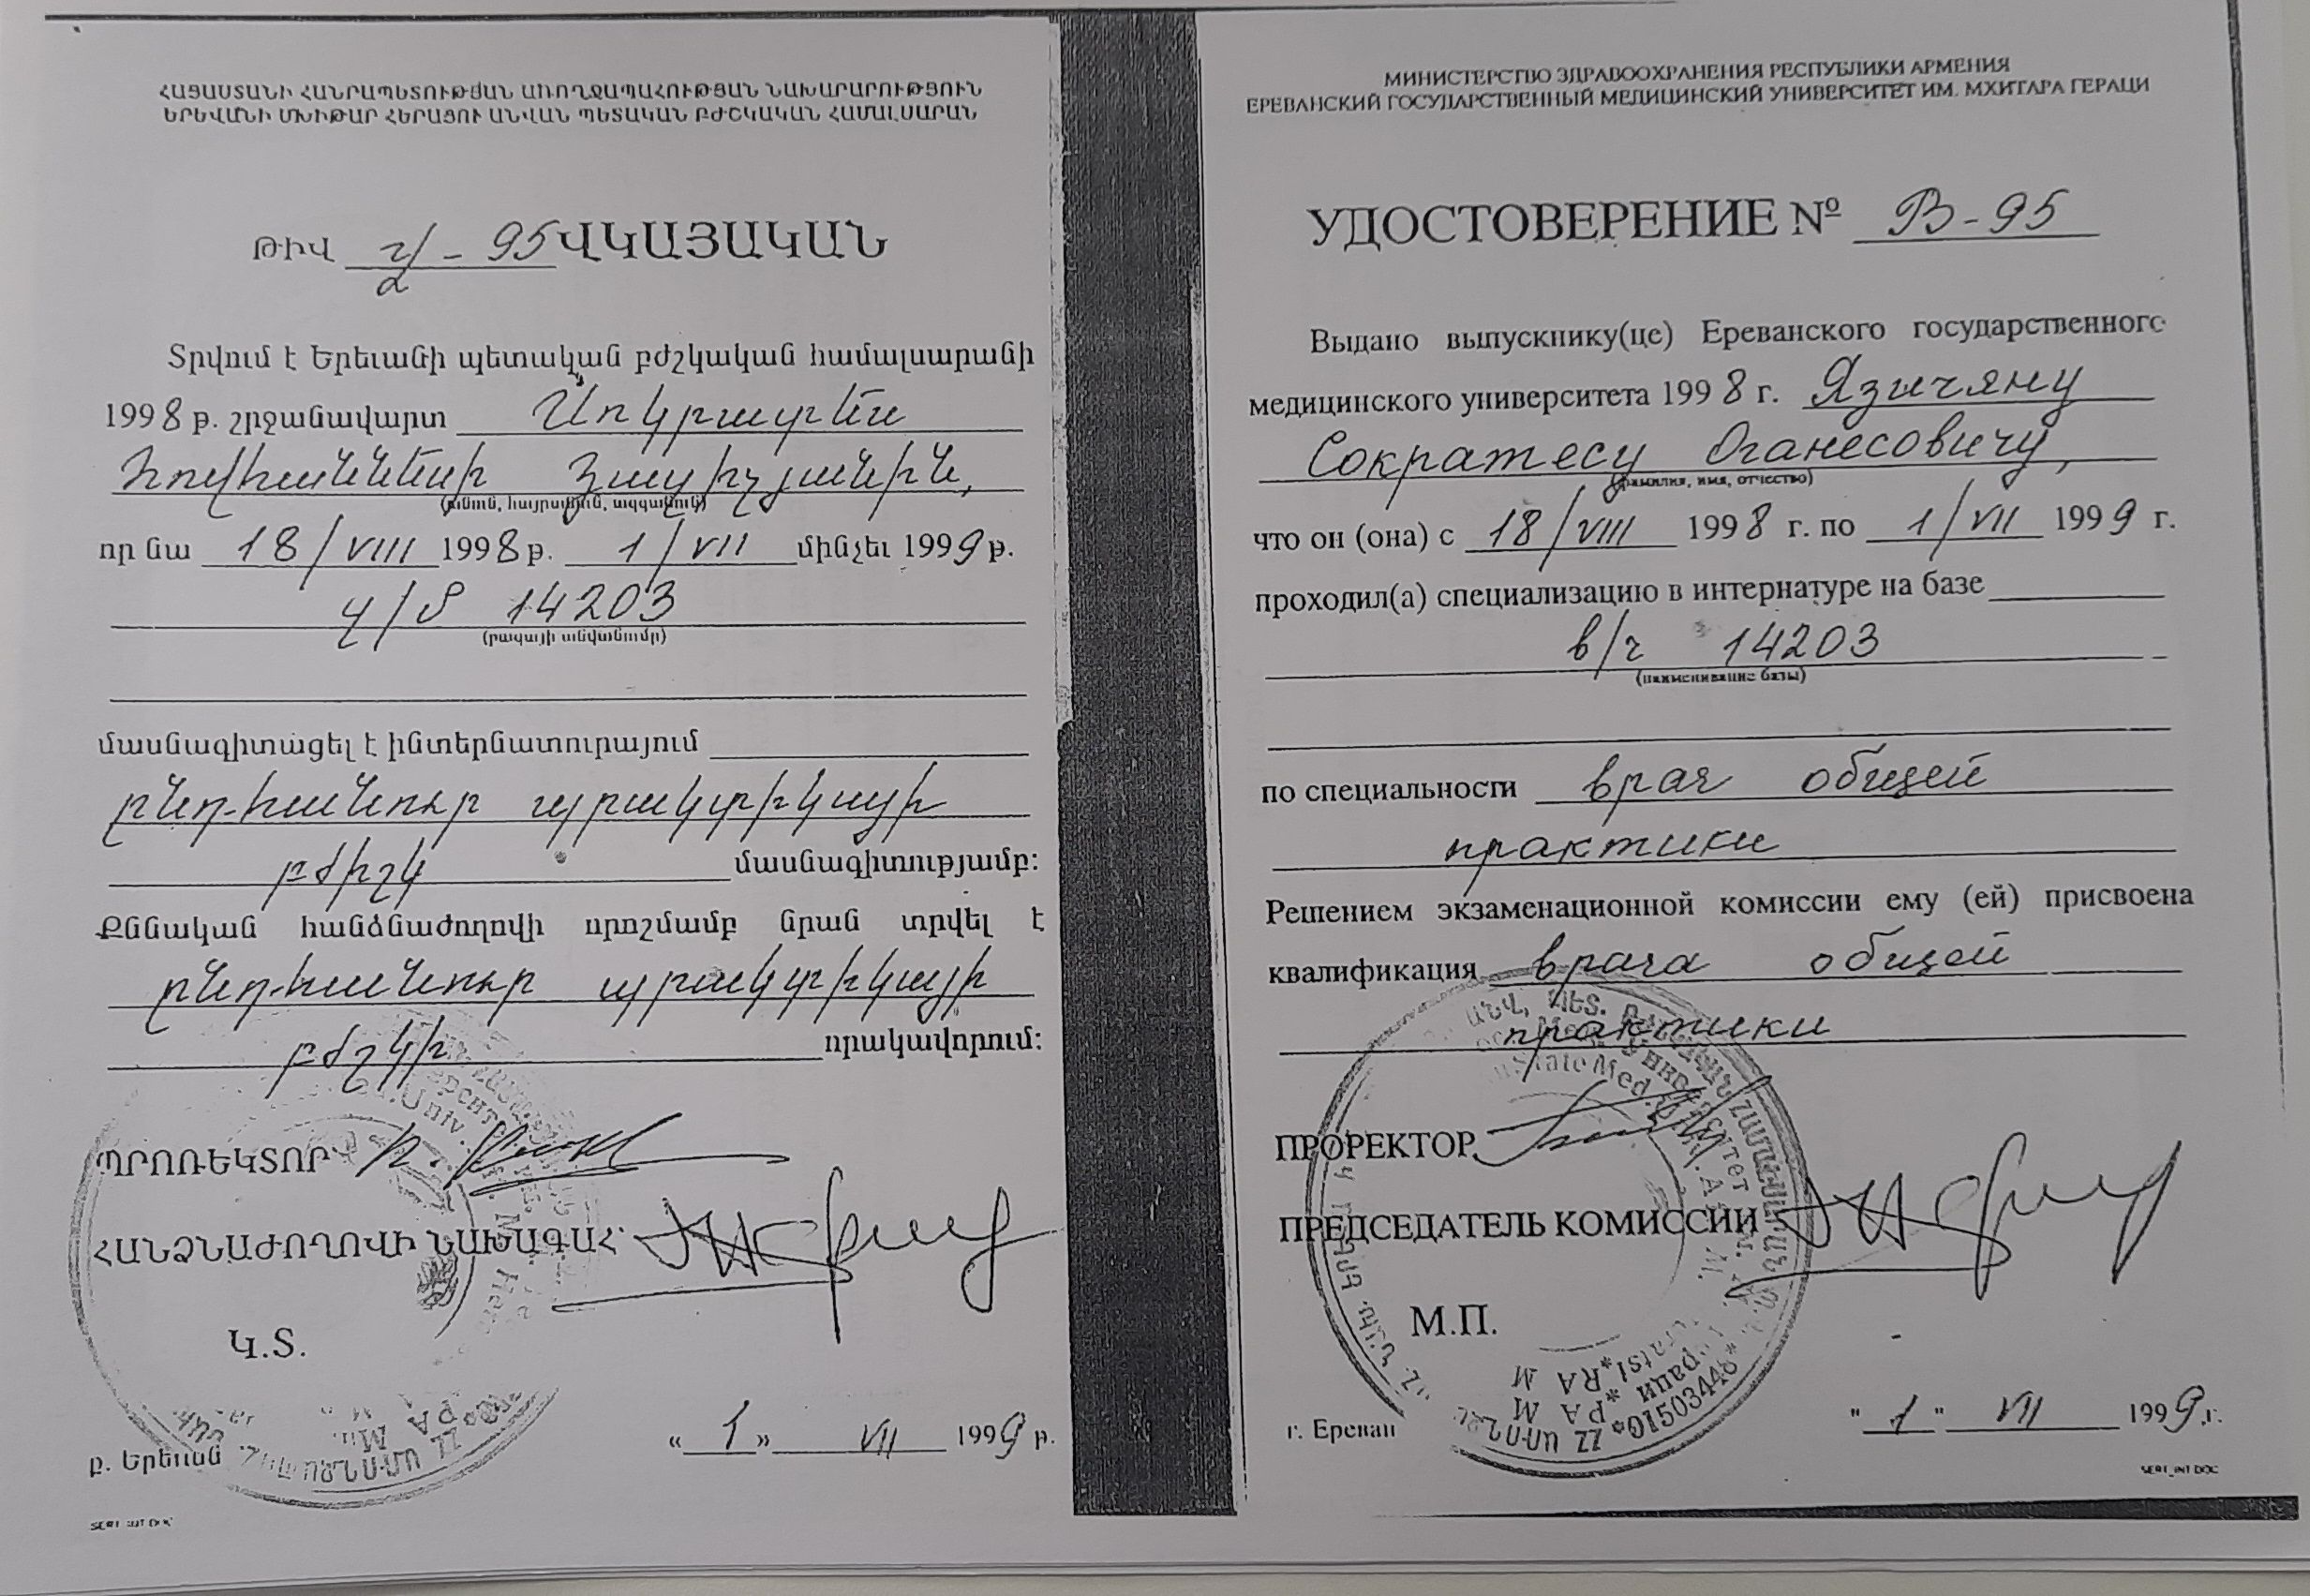 ՀԱՅԱՍՏԱՆԻ ՀԱՆՐԱՊԵՏՈՒԹՅԱՆ ԱՌՈՂՋԱՊԱՀՈՒԹՅԱՆ ՆԱԽԱՐԱՐՈՒԹՅՈՒՆ
ԵՐԵՎԱՆԻ ՄԽԻԹԱՐ ՀԵՐԱՑՈՒ ԱՆՎԱՆ ՊԵՏԱԿԱՆ ԲԺՇԿԱԿԱՆ ՀԱՄԱԼՍԱՐԱՆ
ԹԻՎ վ - 95 ՎԿԱՅԱԿԱՆ
Տրվում է Երեւանի պետական բժշկական համալսարանի
1998 թ. շրջանավարտ Սոկրատես
Հովհաննեսի Յազիչյանին,
(անուն, հայրանուն, ազգանուն)
որ նա 18/VIII 1998 թ. 1/VII մինչեւ 1999 թ.
զ/մ 14203
(բազայի անվանումը)
մասնագիտացել է ինտերնատուրայում
ընդհանուր պրակտիկայի
բժիշկ մասնագիտությամբ:
Քննական հանձնաժողովի որոշմամբ նրան տրվել է
ընդհանուր պրակտիկայի
բժշկի որակավորում:
ՊՐՈՌԵԿՏՈՐ՝
ՀԱՆՁՆԱԺՈՂՈՎԻ ՆԱԽԱԳԱՀ՝
Կ.Տ.
«1» VII 1999 թ.
ք. Երեւան
SERT_INT.DOC
МИНИСТЕРСТВО ЗДРАВООХРАНЕНИЯ РЕСПУБЛИКИ АРМЕНИЯ
ЕРЕВАНСКИЙ ГОСУДАРСТВЕННЫЙ МЕДИЦИНСКИЙ УНИВЕРСИТЕТ ИМ. МХИТАРА ГЕРАЦИ
УДОСТОВЕРЕНИЕ № В-95
Выдано выпускнику(це) Ереванского государственного
медицинского университета 1998 г. Язичяну
Сократесу Оганесовичу,
(фамилия, имя, отчество)
что он (она) с 18/VIII 1998 г. по 1/VII 1999 г.
проходил(а) специализацию в интернатуре на базе
в/ч 14203
(наименивание базы)
по специальности врач общей
практики
Решением экзаменационной комиссии ему (ей) присвоена
квалификация врача общей
практики
ПРОРЕКТОР
ПРЕДСЕДАТЕЛЬ КОМИССИИ
М.П.
г. Ереван "1" VII 1999 г.
SERT_INT.DOC